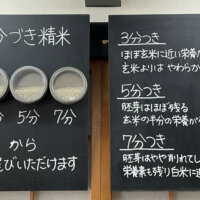 分づき精米
5分
7分
から
びいただけます
3分つき
ほぼ玄米に近い栄養が
玄米よりは やわらか
5分つき
胚芽はほぼ残る
玄米の半分の栄養が
7分つき
胚芽はやや削れてし
栄養素も残り白米に近